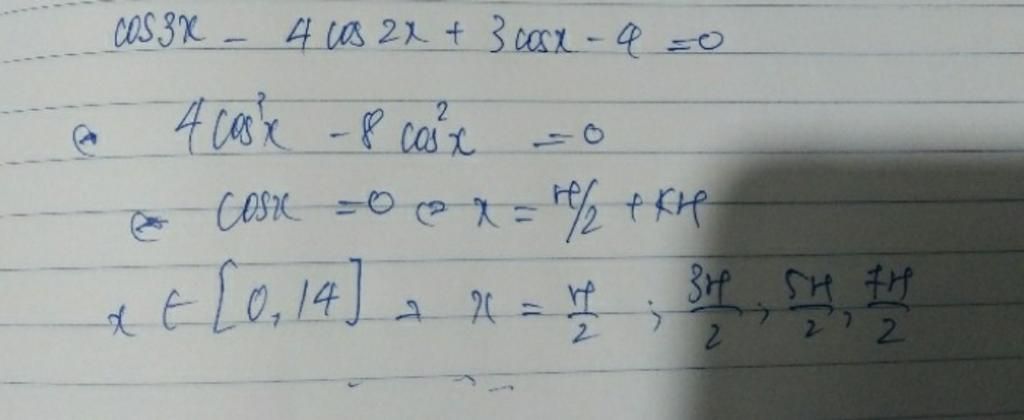 cos3x - 4cos2x + 3cosx - 4 = 0
⇔ 4cos³x - 8cos²x = 0
⇔ cosx = 0 ⇔ x = π/2 + kπ
x ∈ [0,14] → x = π/2 ; 3π/2, 5π/2, 7π/2